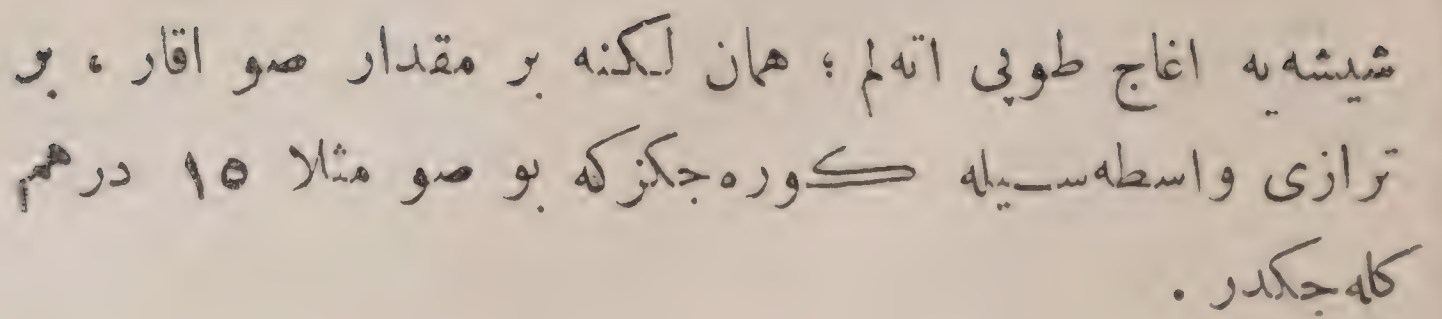 شیشه‌یه اغاج طوپی اته‌لم ؛ همان لكنه بر مقدار صو اقار ، بر
ترازی واسطه‌سیله كوره‌جكز كه بو صو مثلا ۱۵ درهم
كله‌جكدر .